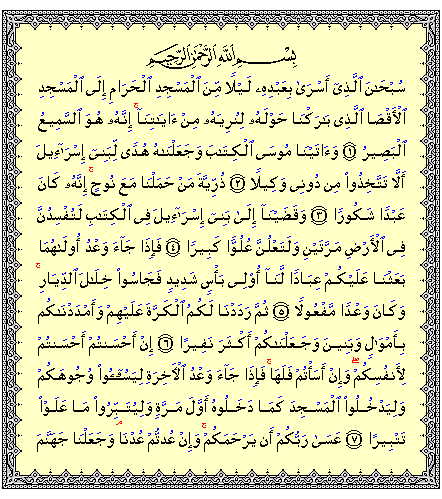 بِسْمِ ٱللَّهِ ٱلرَّحْمَٰنِ ٱلرَّحِيمِ
سُبْحَٰنَ ٱلَّذِىٓ أَسْرَىٰ بِعَبْدِهِۦ لَيْلًا مِّنَ ٱلْمَسْجِدِ ٱلْحَرَامِ إِلَى ٱلْمَسْجِدِ
ٱلْأَقْصَا ٱلَّذِى بَٰرَكْنَا حَوْلَهُۥ لِنُرِيَهُۥ مِنْ ءَايَٰتِنَآ ۚ إِنَّهُۥ هُوَ ٱلسَّمِيعُ
ٱلْبَصِيرُ ۝١ وَءَاتَيْنَا مُوسَى ٱلْكِتَٰبَ وَجَعَلْنَٰهُ هُدًى لِّبَنِىٓ إِسْرَٰٓءِيلَ
أَلَّا تَتَّخِذُوا۟ مِن دُونِى وَكِيلًا ۝٢ ذُرِّيَّةَ مَنْ حَمَلْنَا مَعَ نُوحٍ ۚ إِنَّهُۥ كَانَ
عَبْدًا شَكُورًا ۝٣ وَقَضَيْنَآ إِلَىٰ بَنِىٓ إِسْرَٰٓءِيلَ فِى ٱلْكِتَٰبِ لَتُفْسِدُنَّ
فِى ٱلْأَرْضِ مَرَّتَيْنِ وَلَتَعْلُنَّ عُلُوًّا كَبِيرًا ۝٤ فَإِذَا جَآءَ وَعْدُ أُولَىٰهُمَا
بَعَثْنَا عَلَيْكُمْ عِبَادًا لَّنَآ أُو۟لِى بَأْسٍ شَدِيدٍ فَجَاسُوا۟ خِلَٰلَ ٱلدِّيَارِ ۚ
وَكَانَ وَعْدًا مَّفْعُولًا ۝٥ ثُمَّ رَدَدْنَا لَكُمُ ٱلْكَرَّةَ عَلَيْهِمْ وَأَمْدَدْنَٰكُم
بِأَمْوَٰلٍ وَبَنِينَ وَجَعَلْنَٰكُمْ أَكْثَرَ نَفِيرًا ۝٦ إِنْ أَحْسَنتُمْ أَحْسَنتُمْ
لِأَنفُسِكُمْ ۖ وَإِنْ أَسَأْتُمْ فَلَهَا ۚ فَإِذَا جَآءَ وَعْدُ ٱلْءَاخِرَةِ لِيَسُۥٓـُٔوا۟ وُجُوهَكُمْ
وَلِيَدْخُلُوا۟ ٱلْمَسْجِدَ كَمَا دَخَلُوهُ أَوَّلَ مَرَّةٍ وَلِيُتَبِّرُوا۟ مَا عَلَوْا۟
تَتْبِيرًا ۝٧ عَسَىٰ رَبُّكُمْ أَن يَرْحَمَكُمْ ۚ وَإِنْ عُدتُّمْ عُدْنَا ۘ وَجَعَلْنَا جَهَنَّمَ